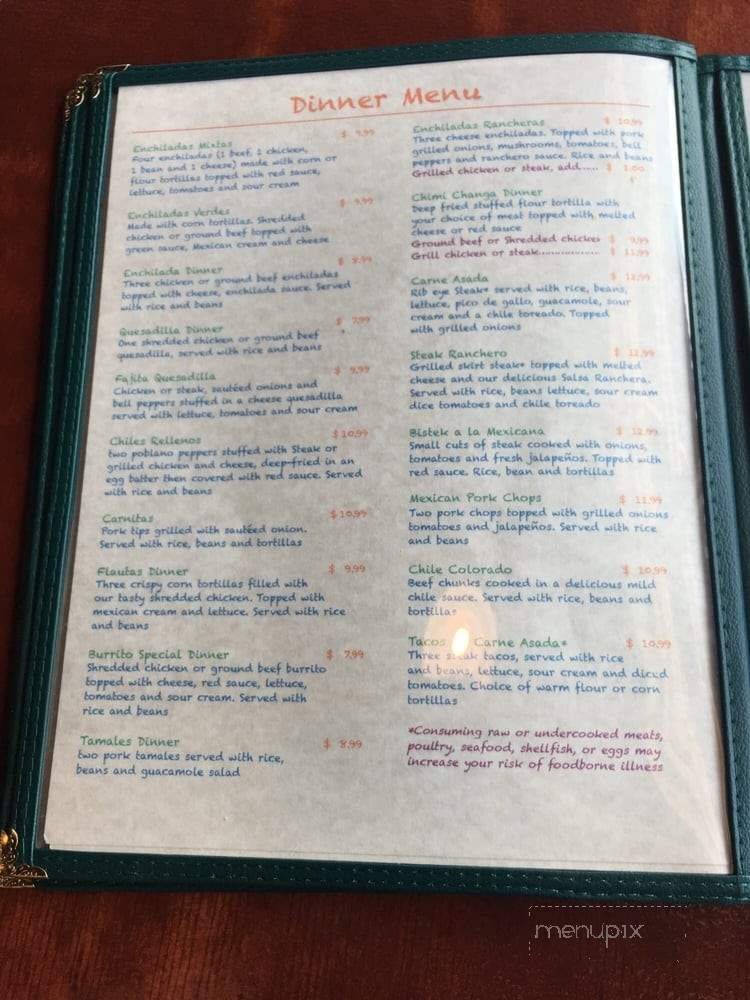 Dinner Menu
Enchiladas Mixtas $ 9.99
Four enchiladas (1 beef, 1 chicken,
1 bean and 1 cheese) made with corn or
flour tortillas topped with red sauce,
lettuce, tomatoes and sour cream
Enchiladas Verdes $ 9.99
Made with corn tortillas. Shredded
chicken or ground beef topped with
green sauce, Mexican cream and cheese
Enchilada Dinner $ 8.99
Three chicken or ground beef enchiladas
topped with cheese, enchilada sauce. Served
with rice and beans
Quesadilla Dinner $ 7.99
One shredded chicken or ground beef
quesadilla, served with rice and beans
Fajita Quesadilla $ 9.99
Chicken or steak, sautéed onions and
bell peppers stuffed in a cheese quesadilla
served with lettuce, tomatoes and sour cream
Chiles Rellenos $10.99
two poblano peppers stuffed with Steak or
grilled chicken and cheese, deep-fried in an
egg batter then covered with red sauce. Served
with rice and beans
Carnitas $10.99
Pork tips grilled with sautéed onion.
Served with rice, beans and tortillas
Flautas Dinner $ 9.99
Three crispy corn tortillas filled with
our tasty shredded chicken. Topped with
mexican cream and lettuce. Served with rice
and beans
Burrito Special Dinner $ 7.99
Shredded chicken or ground beef burrito
topped with cheese, red sauce, lettuce,
tomatoes and sour cream. Served with
rice and beans
Tamales Dinner $ 8.99
two pork tamales served with rice,
beans and guacamole salad
Enchiladas Rancheras $ 10.99
Three cheese enchiladas. Topped with pork
grilled onions, mushrooms, tomatoes, bell
peppers and ranchero sauce. Rice and beans
Grilled chicken or steak, add..... $ 1.00
Chimi Changa Dinner
Deep fried stuffed flour tortilla with
your choice of meat topped with melted
cheese or red sauce
Ground beef or Shredded chicken $ 9.99
Grill chicken or steak.................. $ 11.99
Carne Asada $ 12.99
Rib eye Steak* served with rice, beans,
lettuce, pico de gallo, guacamole, sour
cream and a chile toreado. Topped
with grilled onions
Steak Ranchero $ 12.99
Grilled skirt steak* topped with melted
cheese and our delicious Salsa Ranchera.
Served with rice, beans lettuce, sour cream
dice tomatoes and chile toreado
Bistek a la Mexicana $ 12.99
Small cuts of steak cooked with onions,
tomatoes and fresh jalapeños. Topped with
red sauce. Rice, bean and tortillas
Mexican Pork Chops $ 11.99
Two pork chops topped with grilled onions
tomatoes and jalapeños. Served with rice
and beans
Chile Colorado $ 10.99
Beef chunks cooked in a delicious mild
chile sauce. Served with rice, beans and
tortillas
Tacos Carne Asada* $ 10.99
Three steak tacos, served with rice
and beans, lettuce, sour cream and diced
tomatoes. Choice of warm flour or corn
tortillas
*Consuming raw or undercooked meats,
poultry, seafood, shellfish, or eggs may
increase your risk of foodborne illness
menupix